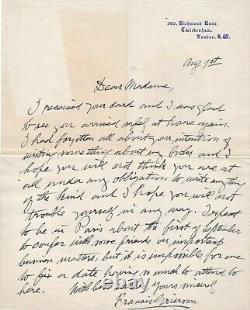 Richmond Road,
Twickenham,
London, S.W.
Aug 1st
Dear Madame,
I received your card and I was glad
to see you arrived safe at home again.
I had forgotten all about your intention of
writing something about my books and I
hope you will not think you are at
all under any obligation to write anything
of the kind and I hope you will not
trouble yourself in any way. I expect
to be in Paris about the first of September
to confer with some friends on important
business matters; but it is impossible for me
to fix a date having so much to attend to
here.
With
Yours sincerely
Francis Grierson
www.iamedia.com